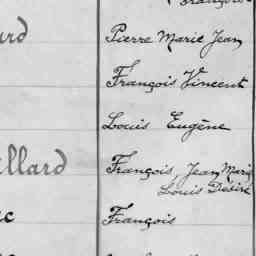 François
urd Pierre Marie Jean
François Vincent
Louis Eugène
illard François, Jean Marie
Louis Désiré
ec François